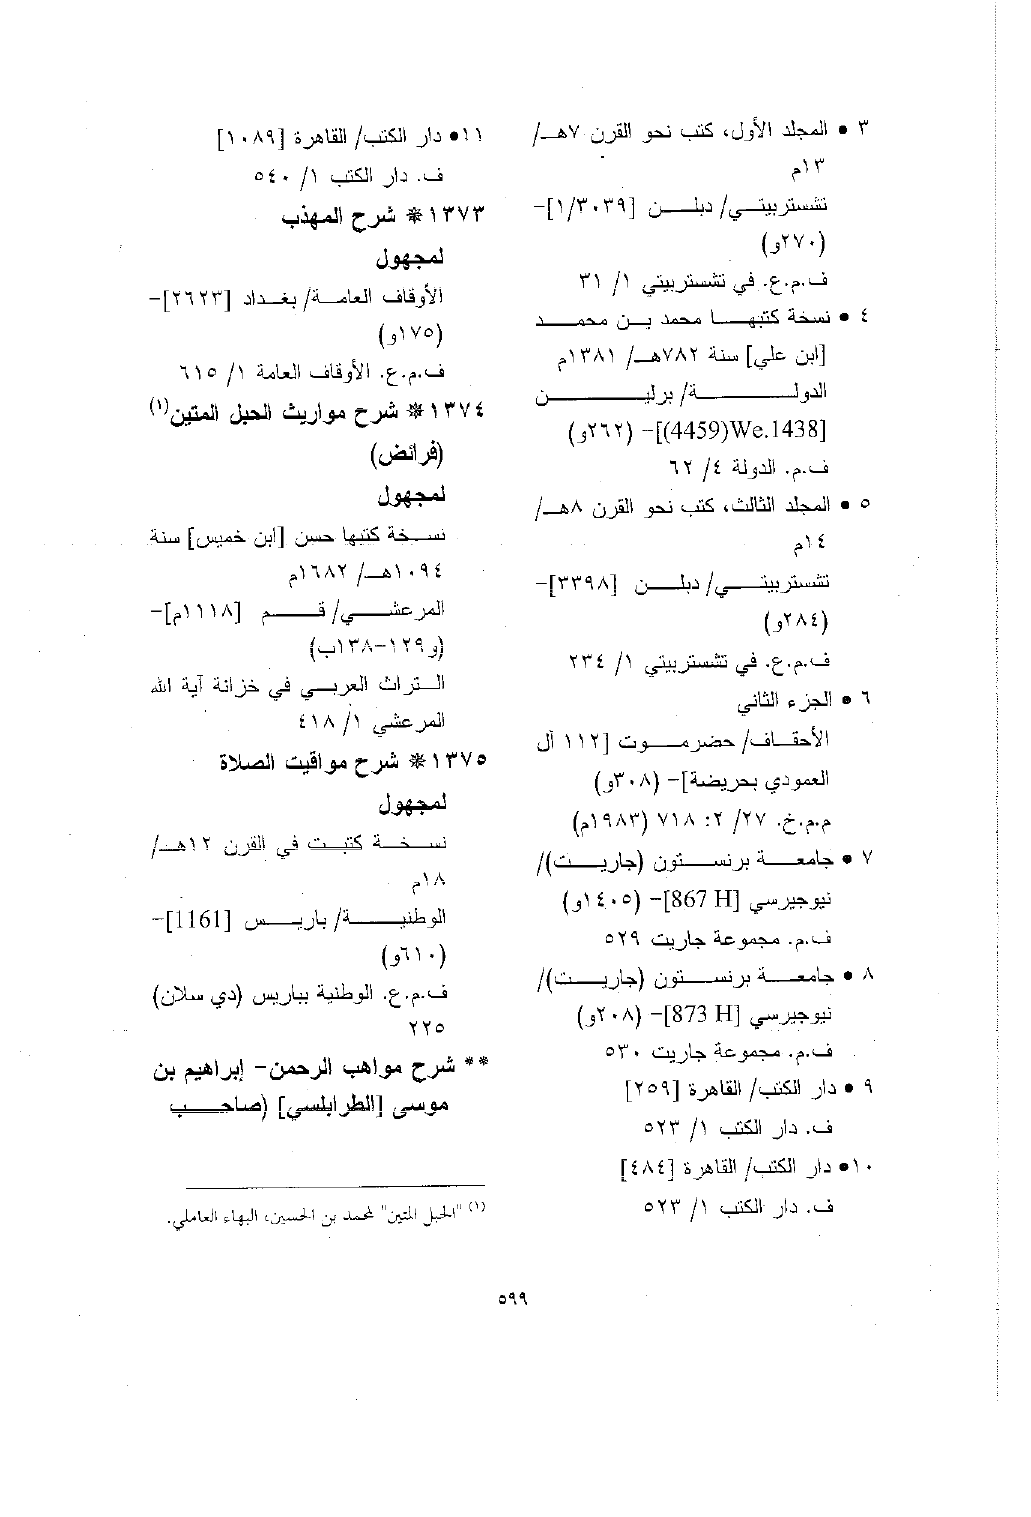 ٣ • المجلد الأول، كتب نحو القرن ٧هـ/
١٣م
تشستربيتي/ دبلن [١/٣٠٣٩]-
(٢٧٠و)
ف.م.ع. في تشستربيتي ١/ ٣١
٤ • نسخة كتبها محمد بن محمد
[ابن علي] سنة ٧٨٢هـ/ ١٣٨١م
الدولة/ برلين
[We.1438(4459)]- (٢٦٢و)
ف.م. الدولة ٤/ ٦٢
٥ • المجلد الثالث، كتب نحو القرن ٨هـ/
١٤م
تشستربيتي/ دبلن [٣٣٩٨]-
(٢٨٤و)
ف.م.ع. في تشستربيتي ١/ ٢٣٤
٦ • الجزء الثاني
الأحقاف/ حضرموت [١١٢ آل
العمودي بحريضة]- (٣٠٨و)
م.م.خ. ٢٧/ ٢: ٧١٨ (١٩٨٣م)
٧ • جامعة برنستون (جاريت)/
نيوجيرسي [867 H]- (٤٠٥و)
ف.م. مجموعة جاريت ٥٢٩
٨ • جامعة برنستون (جاريت)/
نيوجيرسي [873 H]- (٢٠٨و)
ف.م. مجموعة جاريت ٥٣٠
٩ • دار الكتب/ القاهرة [٢٥٩]
ف. دار الكتب ١/ ٥٢٣
١٠• دار الكتب/ القاهرة [٤٨٤]
ف. دار الكتب ١/ ٥٢٣
١١• دار الكتب/ القاهرة [١٠٨٩]
ف. دار الكتب ١/ ٥٤٠
١٣٧٣* شرح المهذب
لمجهول
الأوقاف العامة/ بغداد [٢٦٢٣]-
(١٧٥و)
ف.م.ع. الأوقاف العامة ١/ ٦١٥
١٣٧٤* شرح مواريث الحبل المتين(١)
(فرائض)
لمجهول
نسخة كتبها حسن [ابن خميس] سنة
١٠٩٤هـ/ ١٦٨٢م
المرعشي/ قم [١١١٨م]-
(و١٢٩-١٣٨ب)
التراث العربي في خزانة آية الله
المرعشي ١/ ٤١٨
١٣٧٥* شرح مواقيت الصلاة
لمجهول
نسخة كتبت في القرن ١٢هـ/
١٨م
الوطنية/ باريس [1161]-
(٦١٠و)
ف.م.ع. الوطنية بباريس (دي سلان)
٢٢٥
** شرح مواهب الرحمن- إبراهيم بن
موسى [الطرابلسي] (صاحب
(١) "الحبل المتين" لمحمد بن الحسين، البهاء العاملي.
٥٩٩